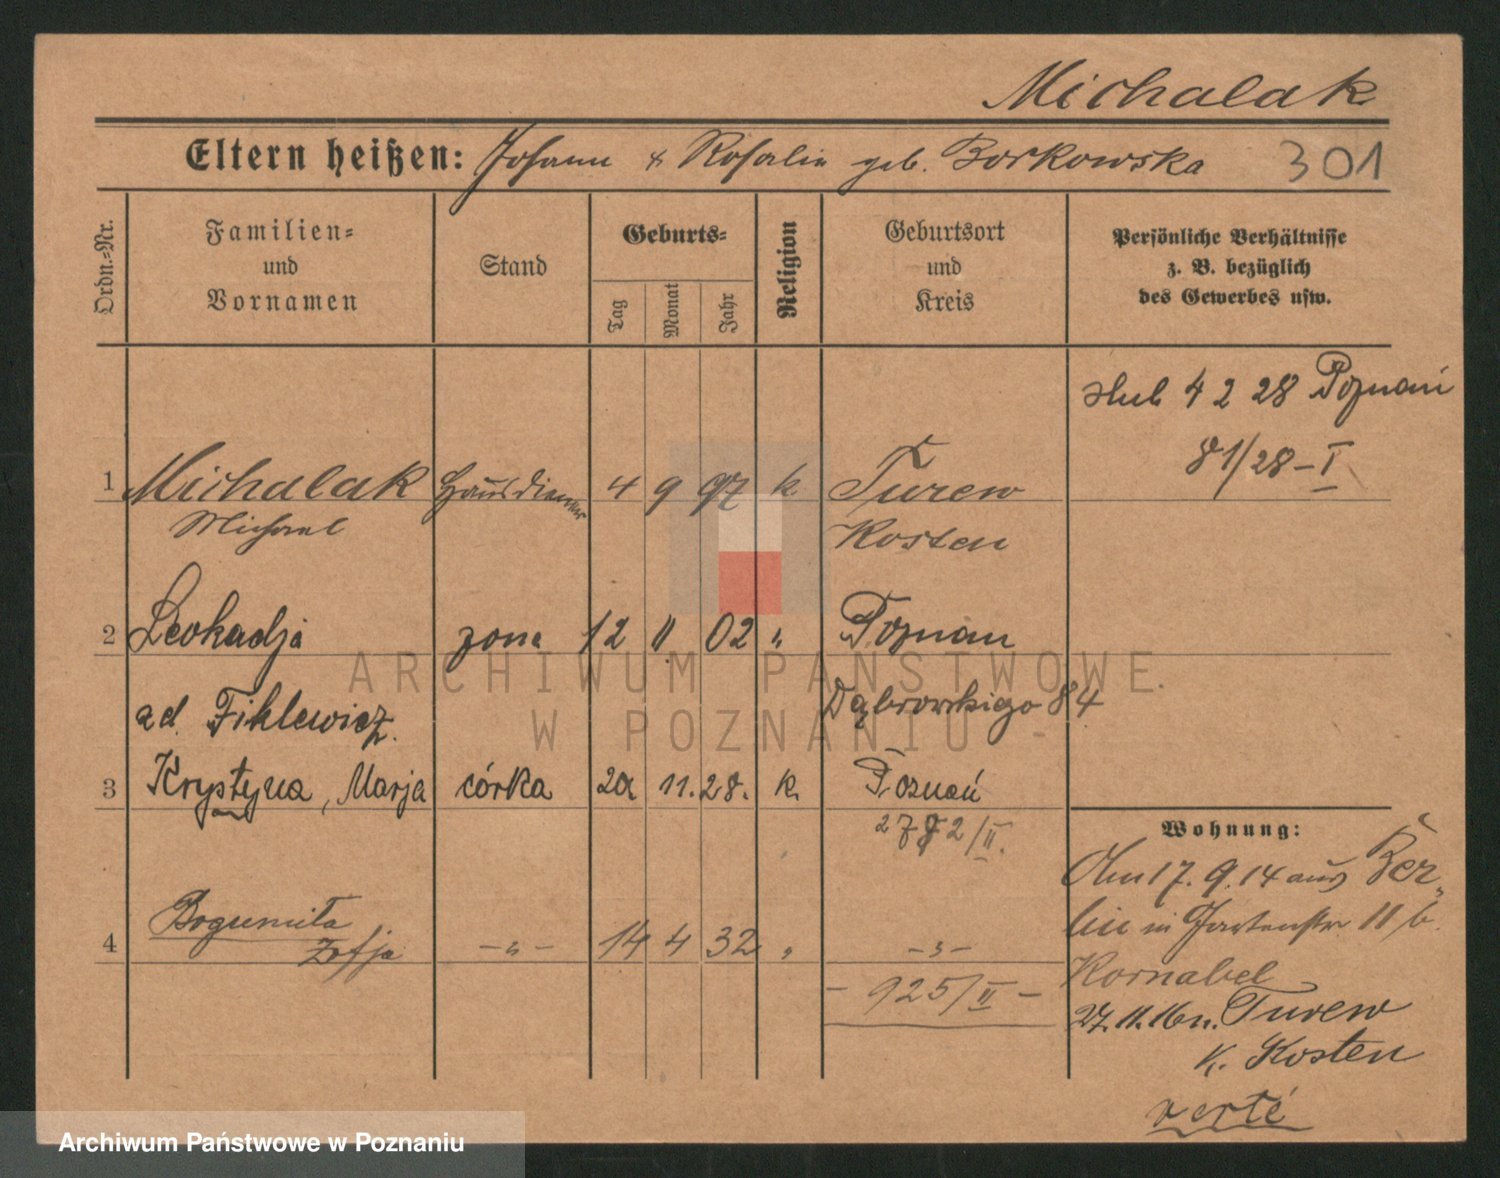 Michalak
Eltern heißen: Johann & Rosalie geb. Borkowska 301
Ordn.-Nr.
Familien-
und
Vornamen
Stand
Geburts-
Tag
Monat
Jahr
Religion
Geburtsort
und
Kreis
Persönliche Verhältnisse
z. B. bezüglich
des Gewerbes usw.
ślub 4 2 28 Poznań
81/28-I
1 Michalak Hausdiener 4 9 97 k Turew
Michael Kosten
2 Leokadja żona 12 11 02 " Poznań
zd. Fiklewicz Dąbrowskiego 84
3 Krystyna, Marja córka 11. 28. k. Poznań
2782/II.
4 Bogumiła
Zofja -"- 14 4 32 " -"-
- 925/II -
Wohnung:
17. 9. 14 aus Ber-
lin in Gartenstr 11 b.
Kornabel
27. 11. 16 n. Turew
K. Kosten
verté
ARCHIWUM PAŃSTWOWE
W POZNANIU
Archiwum Państwowe w Poznaniu